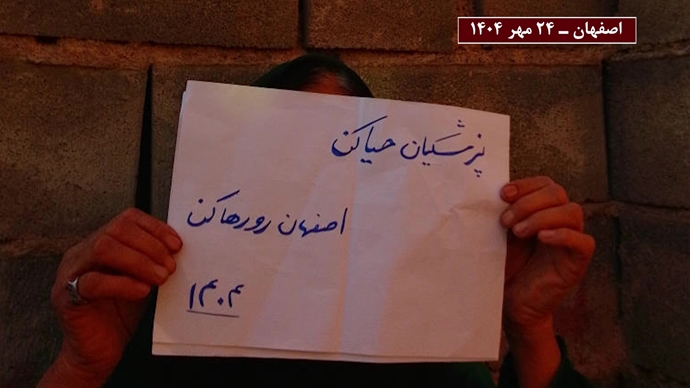 اصفهان ــ ۲۴ مهر ۱۴۰۴
پزشکیان حیا کن
اصفهان رو رها کن
۱۴۰۴